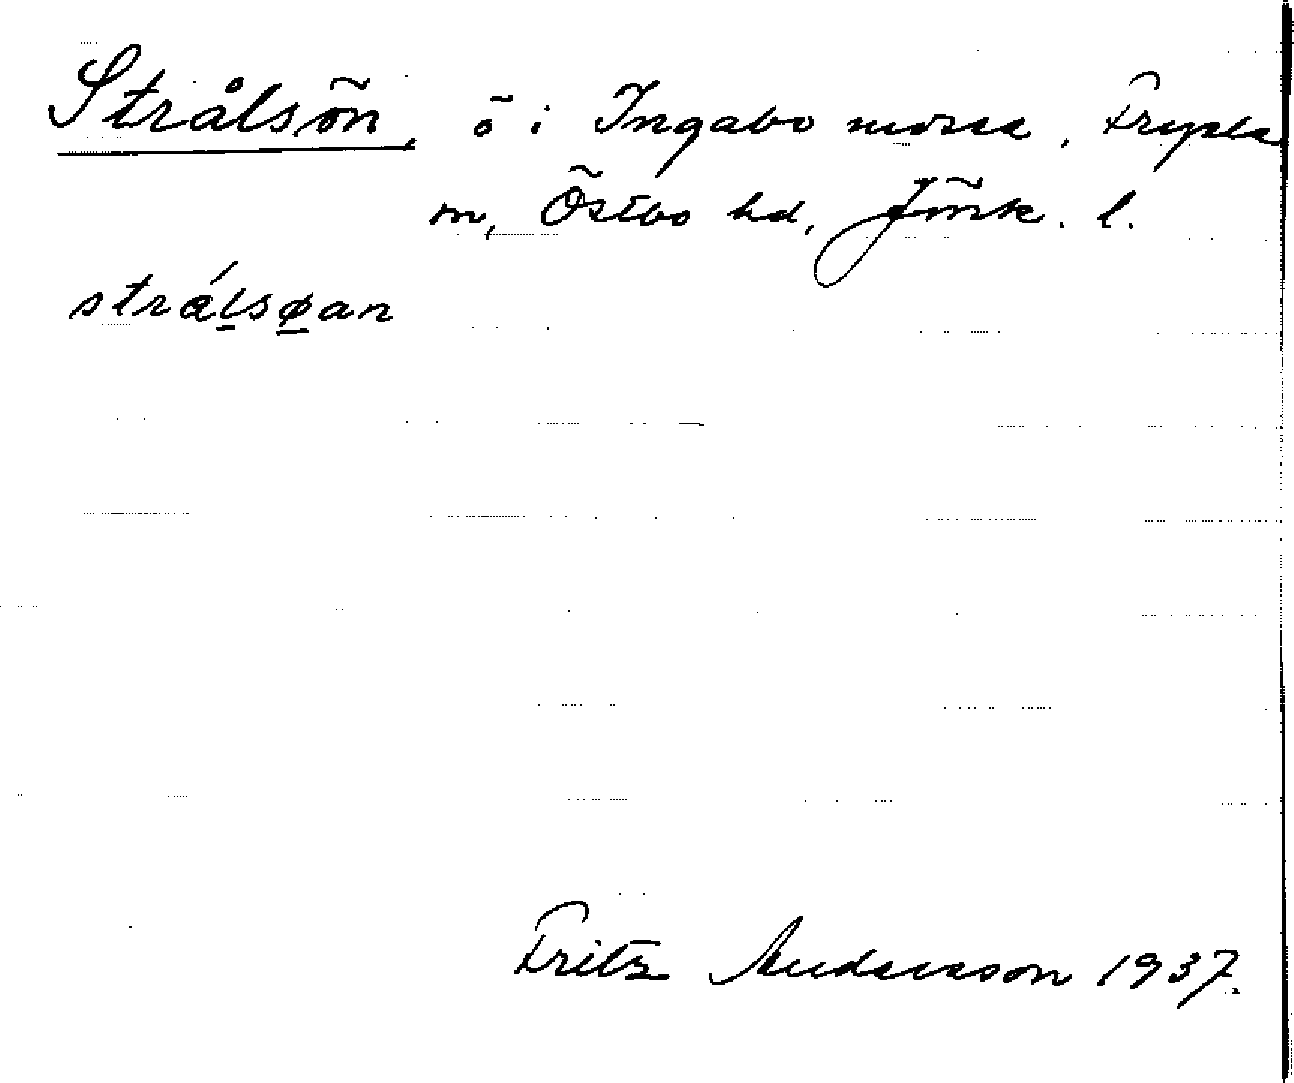 Strålsön, ö i Ingabo mossa, Fryele
sn, Östbo hd, Jönk. l.
strálsøan
Fritz Andersson 1937.